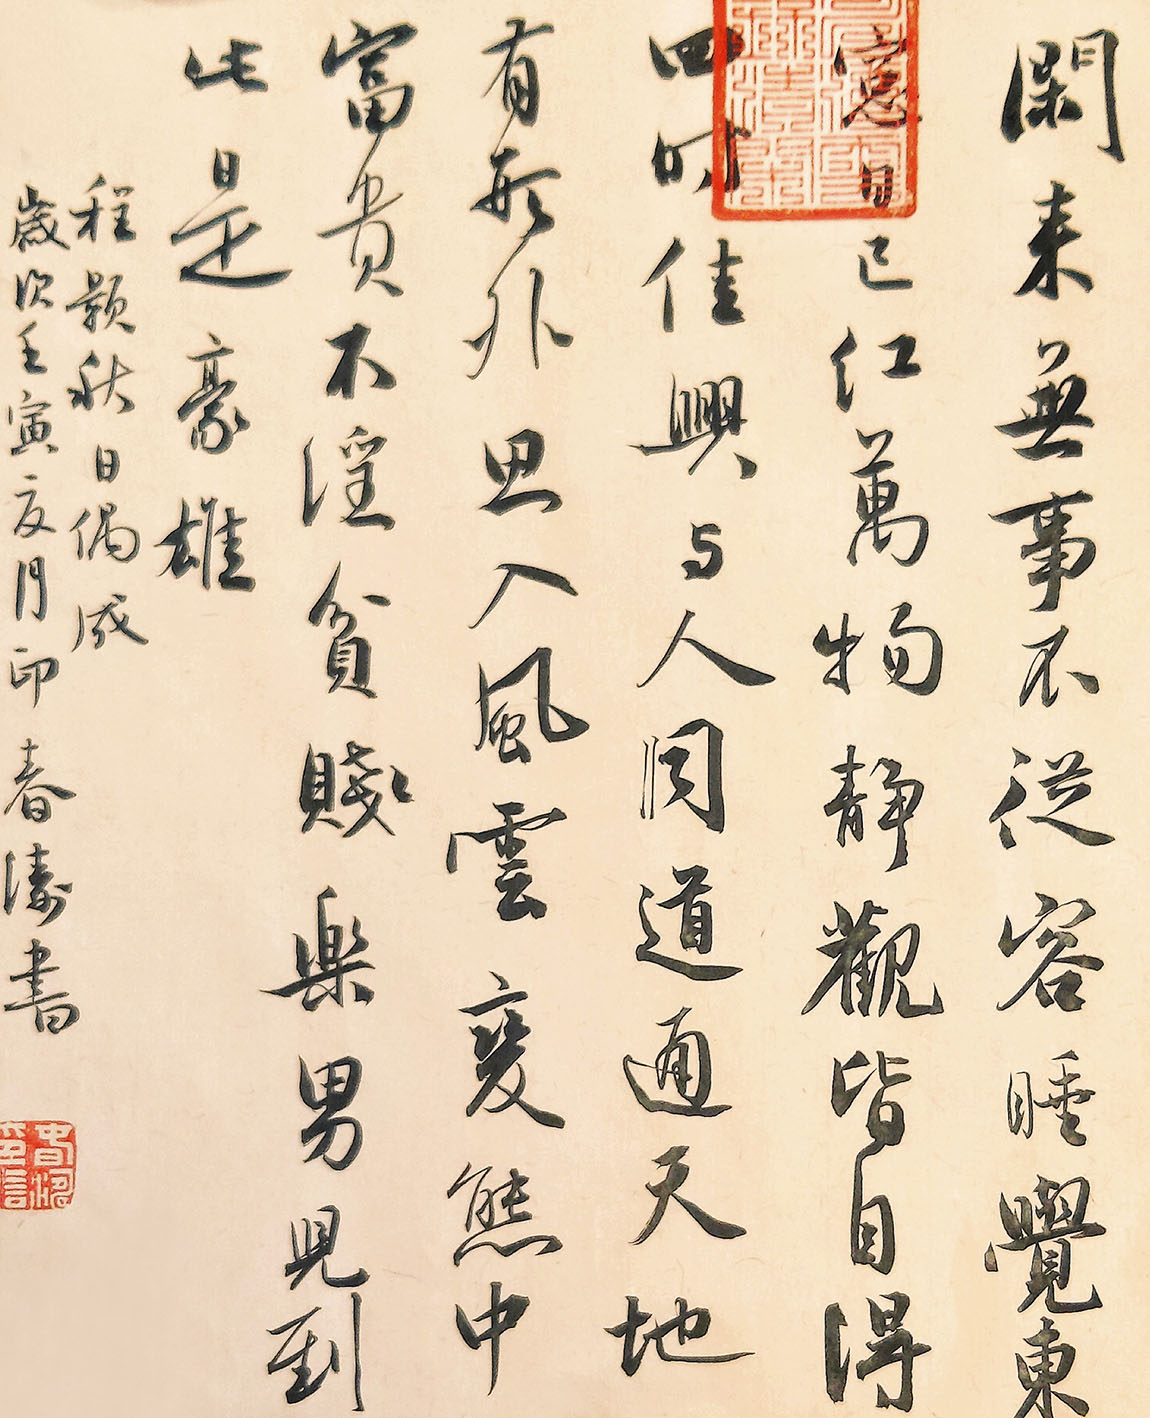 閑来無事不從容睡覺東
窓日已紅萬物静觀皆自得
四时佳興与人同道通天地
有形外思入風雲变態中
富贵不淫貧賤樂男兒到
此是豪雄
程颢秋日偶成
歲次壬寅亥月印春濤書